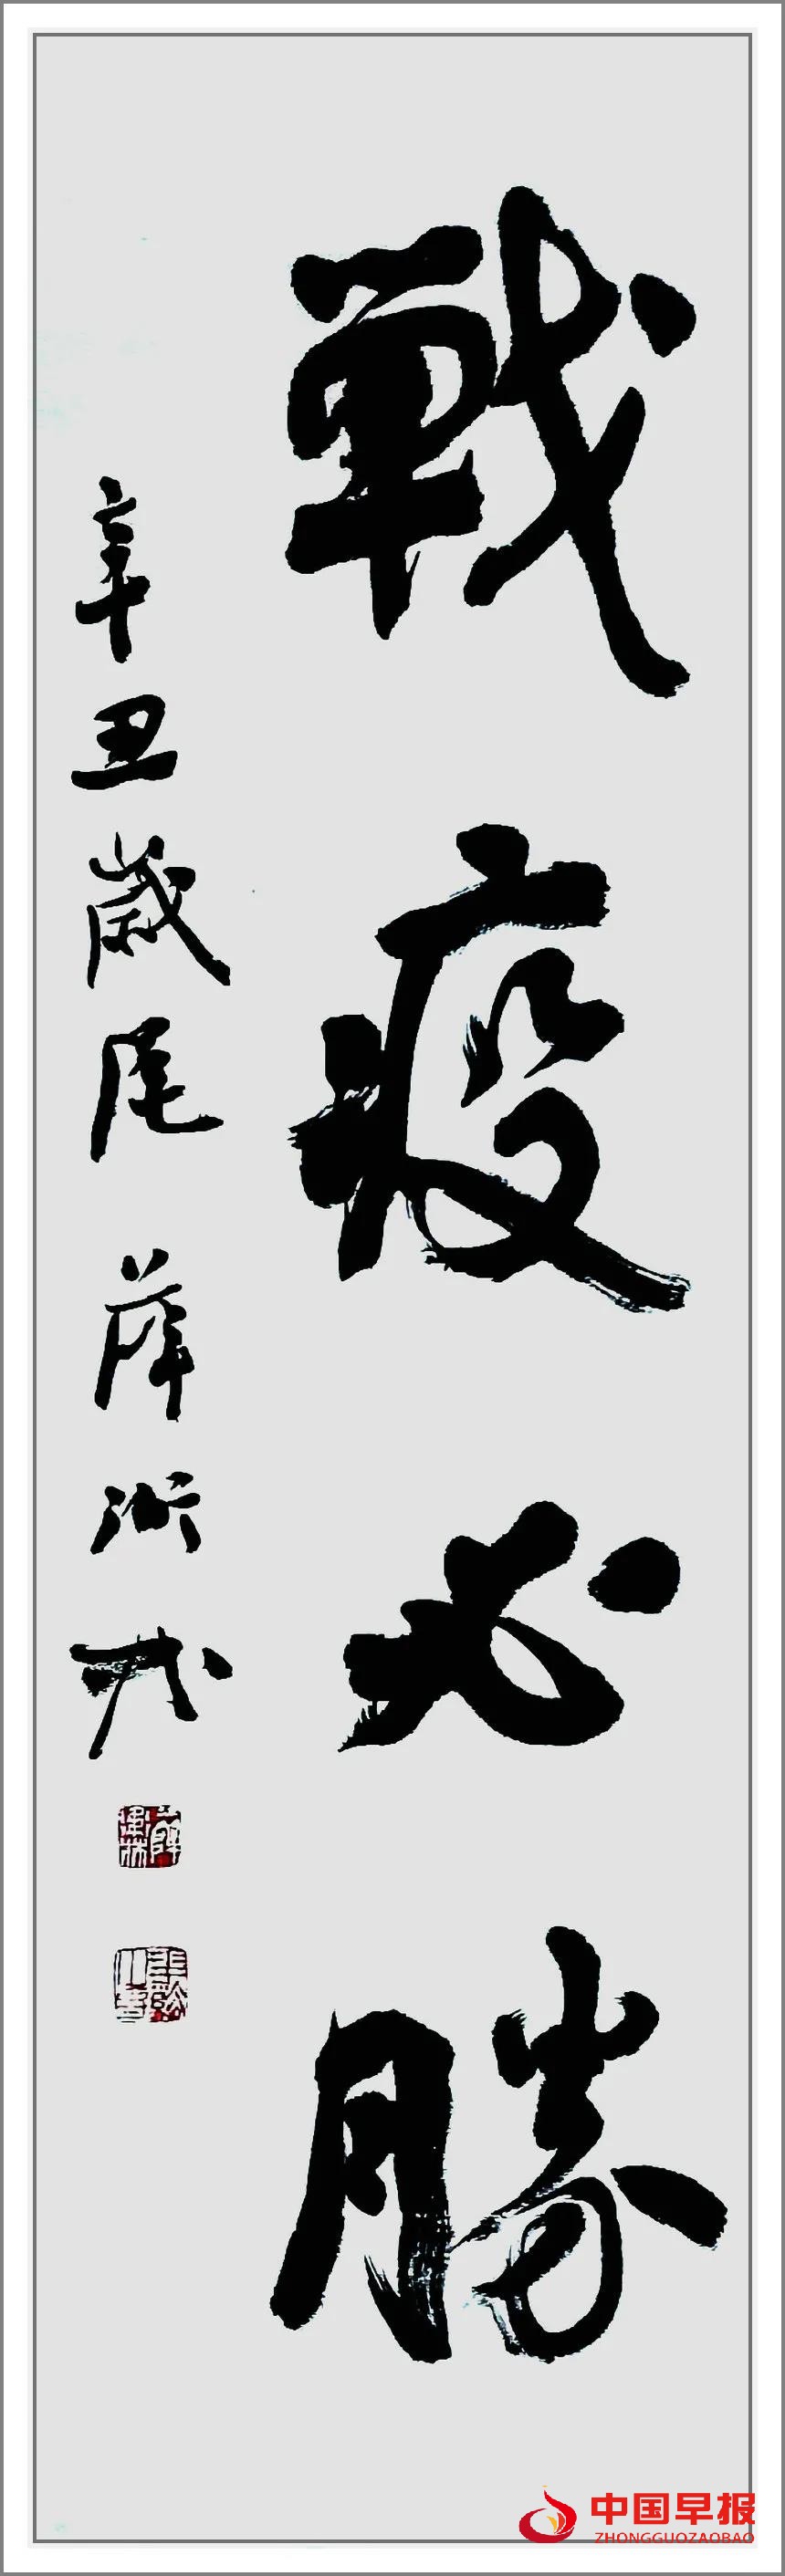 戰疫必勝
辛丑歲尾 薛
中国早报
ZHONGGUOZAOBAO